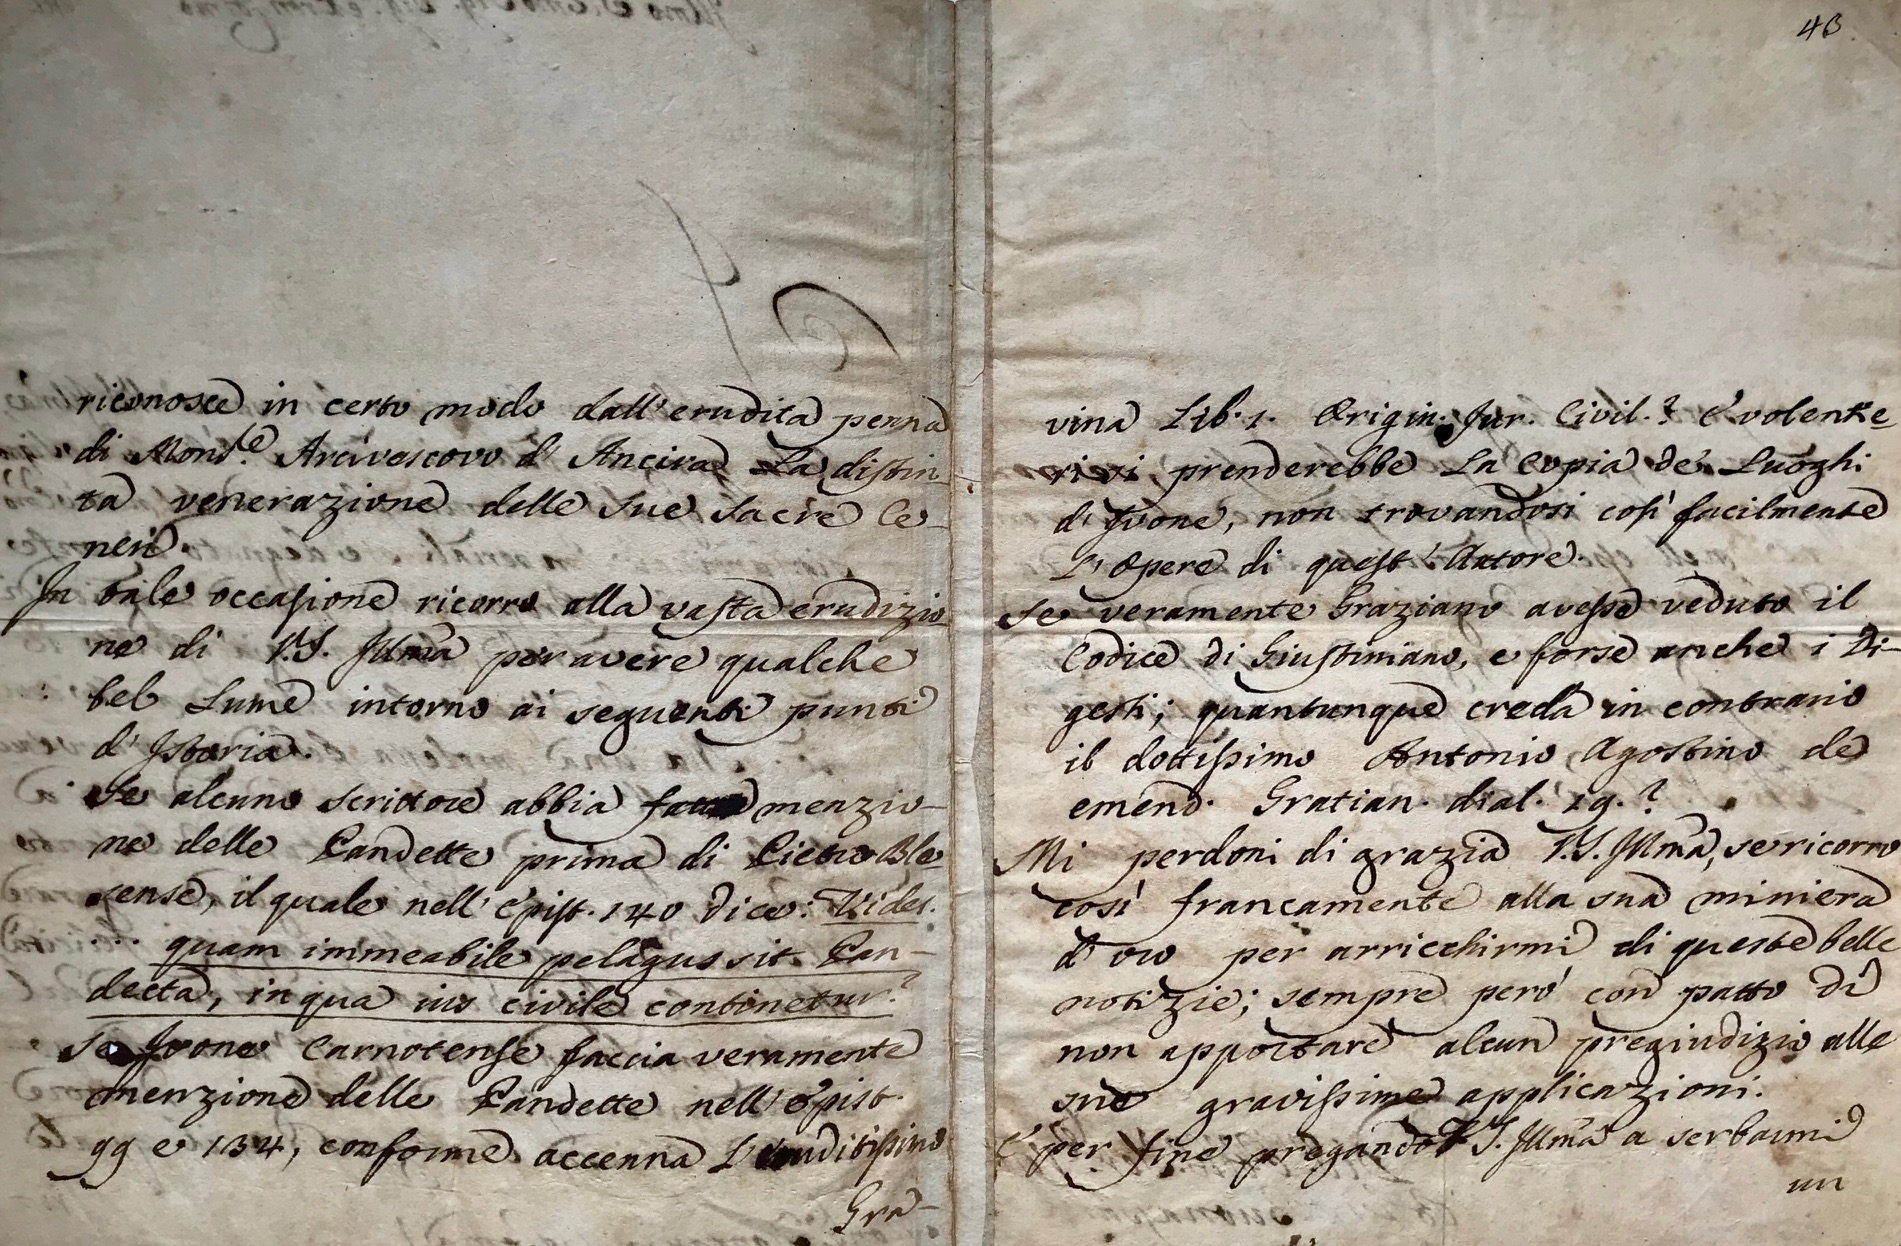 riconosce in certo modo dall'erudita penna
di Mons.re Arcivescovo d'Ancira la distin-
ta venerazione delle sue sacre Ce-
neri.
In tale occasione ricorro alla vasta erudizio
ne di V.S. Illma per avere qualche
bel Lume intorno ai seguenti punti
d'Istoria.
Se alcuno scrittore abbia menzio-
ne delle Pandette prima di Pietro Ble-
sense, il quale nell'Epist. 140 dice: Vides.
... quam immeabile pelagus sit Pan-
decta, in qua ius civile continetur?
Se Ivone Carnotense faccia veramente
menzione delle Pandette nell'Epist.
99 e 134, conforme accenna L'eruditissimo
Gra-
43
vina Lib. 1. Origin. Jur. Civil.? E volentie
rissi prenderebbe La Copia de' Luoghi
d'Ivone, non trovandosi così facilmente
L'Opere di quest'Autore.
Se veramente Graziano avesse veduto il
Codice di Giustiniano, e forse anche i Di-
gesti; quantunque creda in contrario
il dottissimo Antonio Agostino de
emend. Gratian. dial. 19.?
Mi perdoni di grazia V.S. Illma, se ricorro
così francamente alla sua miniera
d'oro per arricchirmi di queste belle
notizie; sempre però con patto di
non apportare alcun pregiudizio alle
sue gravissime applicazioni.
E per fine pregando V.S. Illma a serbarmi
un